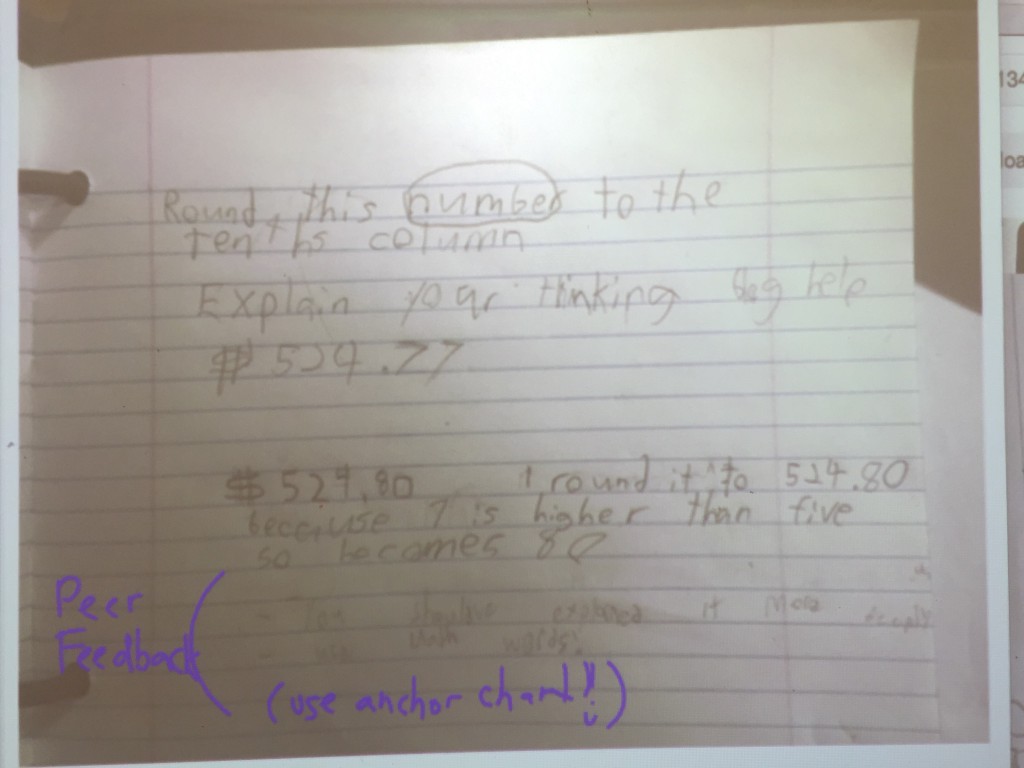 Round this number to the
tenths column
Explain your thinking
$ 524.77
$ 524.80 I round it to 524.80
because 7 is higher than five
so becomes 80
Peer
Feedback
- You explained it more deeply
- use math words!
(use anchor chart!!)
134
loa